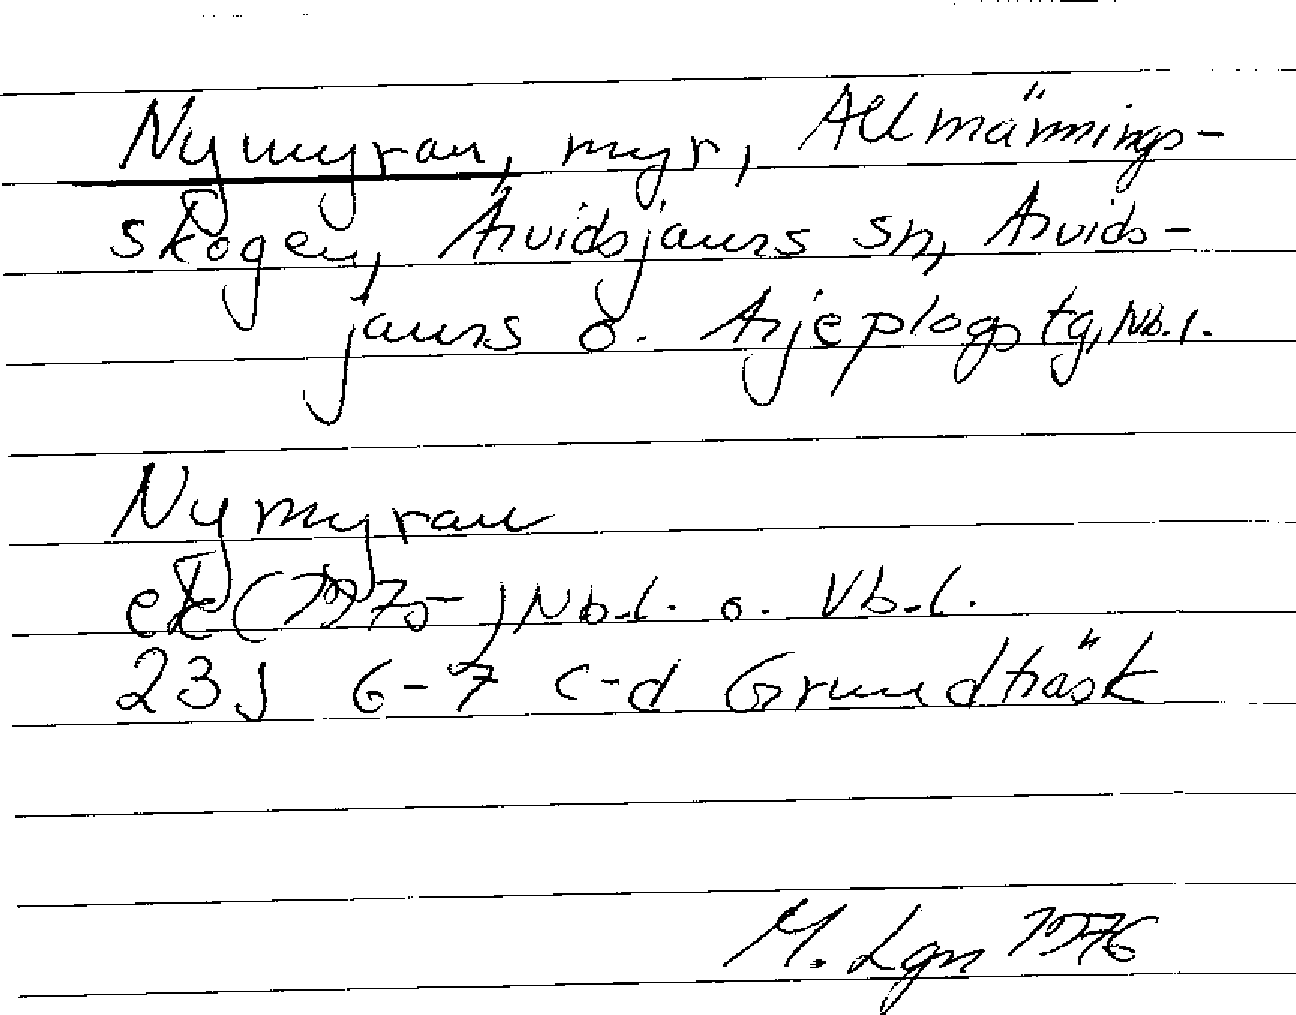 Nymyran, myr, Allmännings-
skogen, Arvidsjaurs sn, Arvids-
jaurs o. Arjeplogs tg, Nb.l.
Nymyran
ek (1975) Nb.l. o. Vb.l.
23J 6-7 c-d Grundträsk
M. Lgn 1976